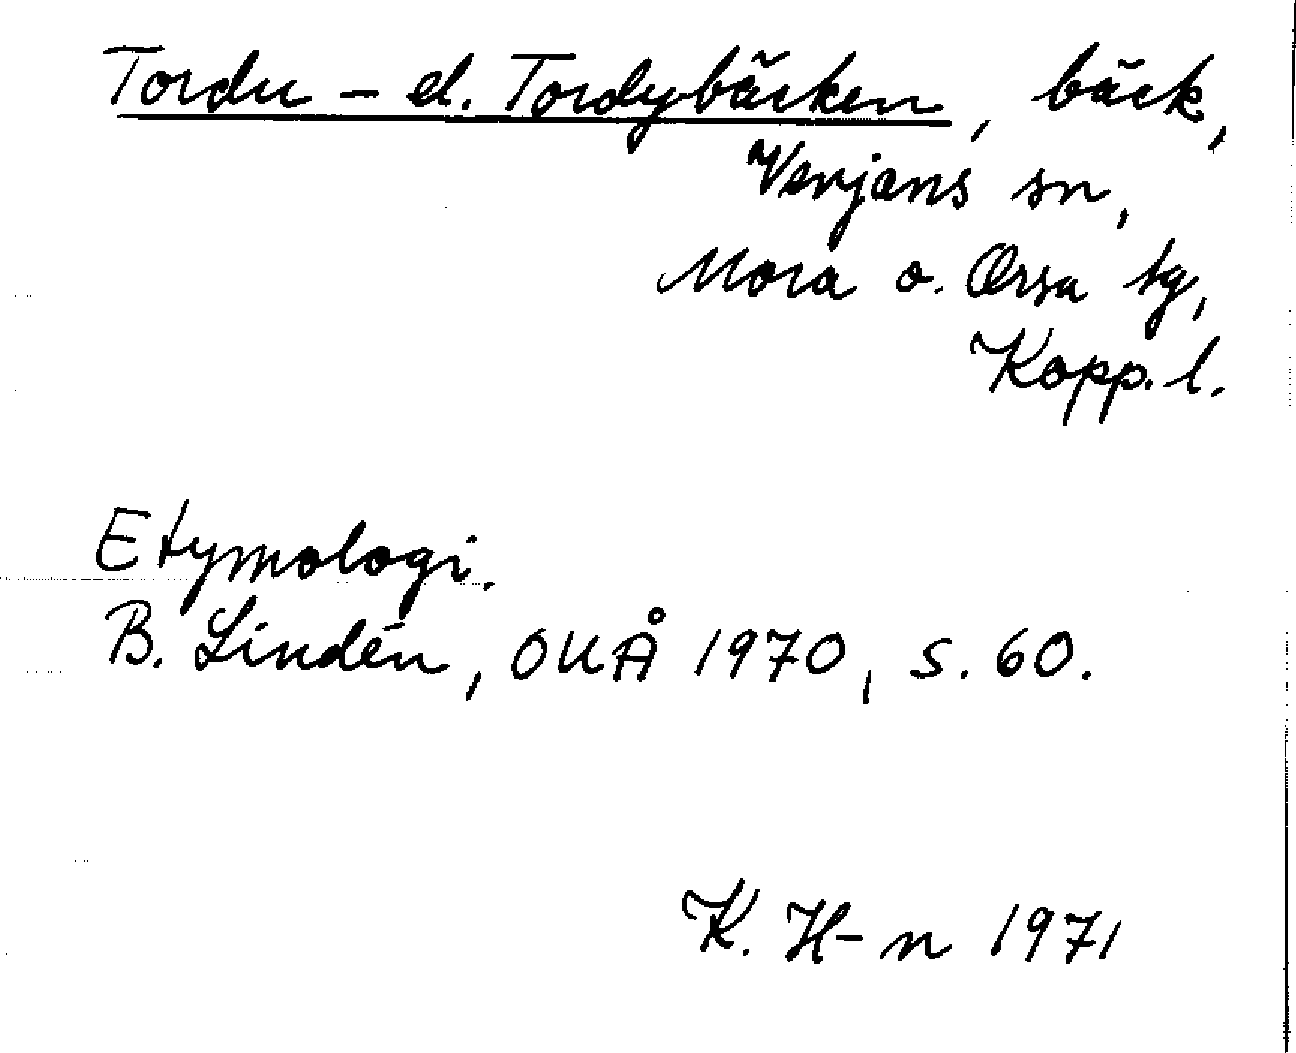 Tordu - el. Tordybäcken, bäck,
Venjans sn,
Mora o. Orsa tg,
Kopp. l.
Etymologi.
B. Lindén, OUÅ 1970, s. 60.
K. H-n 1971